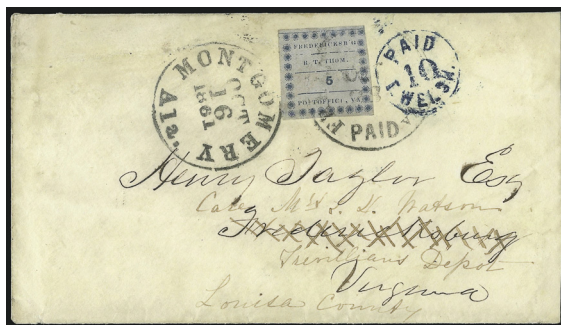 MONTGOMERY
Ala.
OCT
16
1861
FREDERICKSB'G
R. T. THOM.
5
POSTOFFICE, VA
PAID
PAID
10
T. WELSH.
Henry Taylor Esq
Care Mr
Watson
Fredericksburg
Trevillians Depot
Virginia
Louisa County